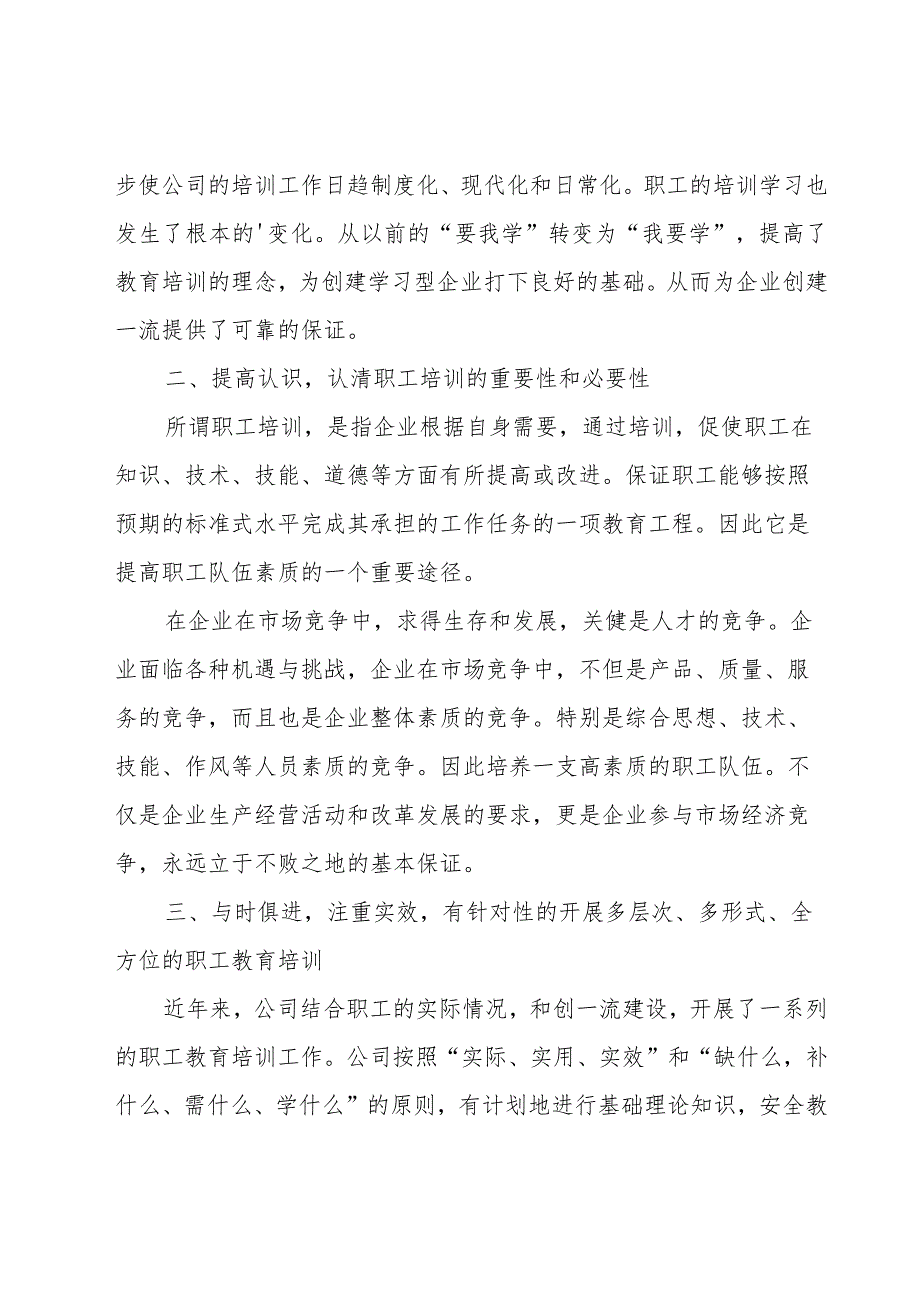 步使公司的培训工作日趋制度化、现代化和日常化。职工的培训学习也
发生了根本的'变化。从以前的“要我学”转变为“我要学”，提高了
教育培训的理念，为创建学习型企业打下良好的基础。从而为企业创建
一流提供了可靠的保证。
二、提高认识，认清职工培训的重要性和必要性
所谓职工培训，是指企业根据自身需要，通过培训，促使职工在
知识、技术、技能、道德等方面有所提高或改进。保证职工能够按照
预期的标准式水平完成其承担的工作任务的一项教育工程。因此它是
提高职工队伍素质的一个重要途径。
在企业在市场竞争中，求得生存和发展，关健是人才的竞争。企
业面临各种机遇与挑战，企业在市场竞争中，不但是产品、质量、服
务的竞争，而且也是企业整体素质的竞争。特别是综合思想、技术、
技能、作风等人员素质的竞争。因此培养一支高素质的职工队伍。不
仅是企业生产经营活动和改革发展的要求，更是企业参与市场经济竞
争，永远立于不败之地的基本保证。
三、与时俱进，注重实效，有针对性的开展多层次、多形式、全
方位的职工教育培训
近年来，公司结合职工的实际情况，和创一流建设，开展了一系列
的职工教育培训工作。公司按照“实际、实用、实效”和“缺什么，补
什么、需什么、学什么”的原则，有计划地进行基础理论知识，安全教